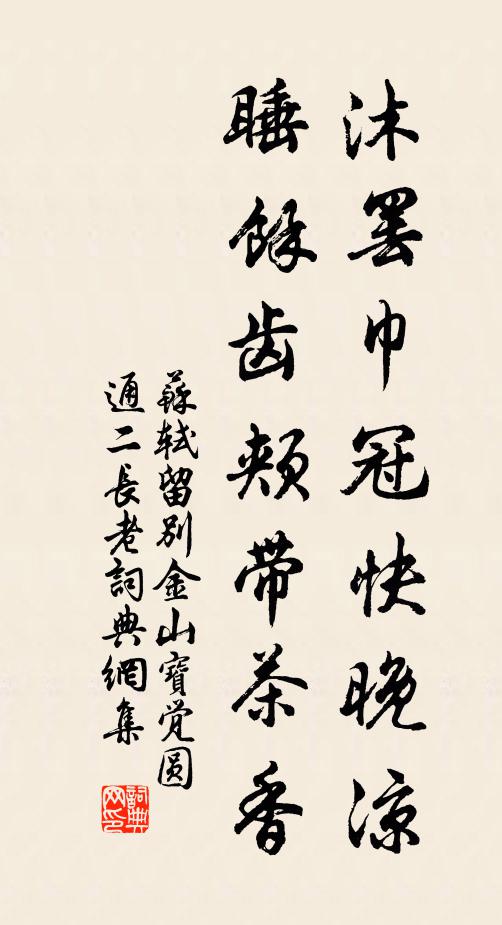 沐罢巾冠快晚涼
睡餘齿颊带茶香
蘇轼留别金山寶覚圆
通二長老詞典網集
詞典网印